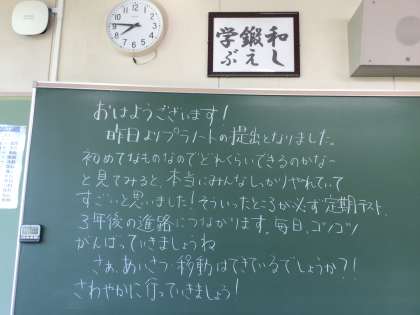 和し
鍛え
学ぶ
おはようございます!
昨日よりプラノートの提出となりました。
初めてなものなのでどれくらいできるのかなー
と見てみると、本当にみんなしっかりやれていて
すごいと思いました!そういったところが必ず定期テスト、
3年後の進路につながります。毎日、コツコツ
がんばっていきましょうね
さぁ、あいさつ・移動はできているでしょうか?!
さわやかに行っていきましょう!